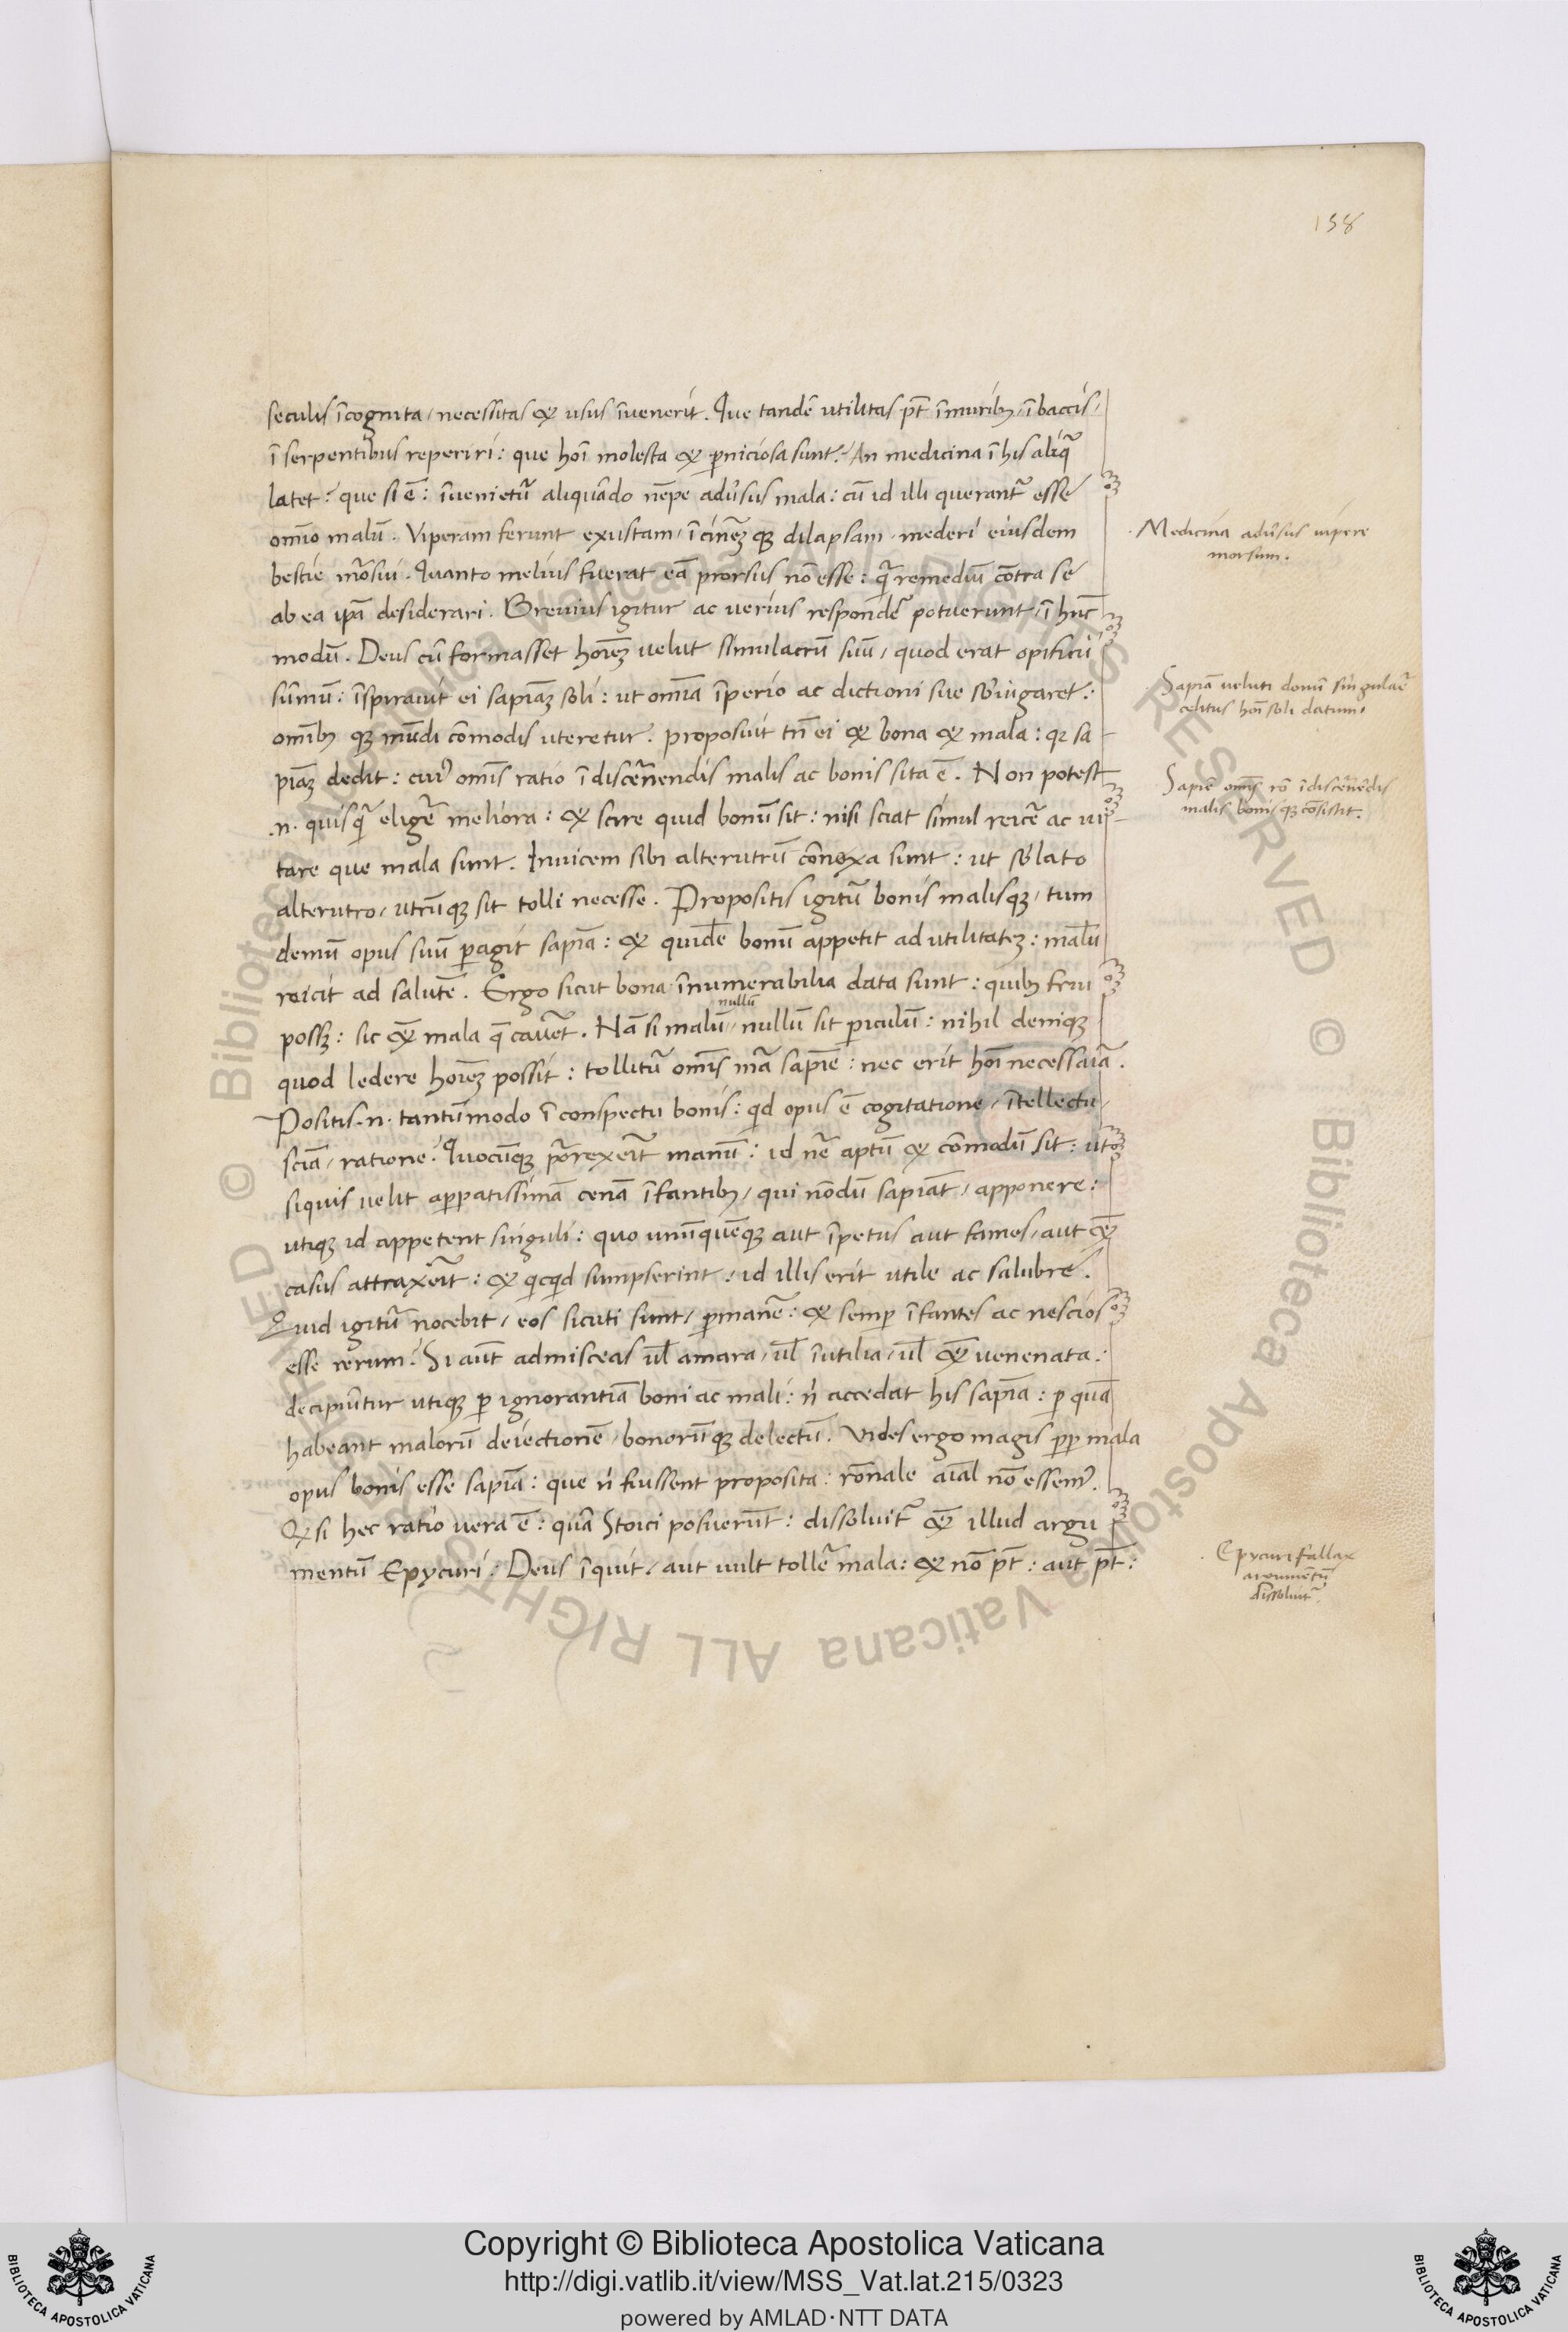 158
seculis īcognita, necessitas & usus īvenerit. Que tandē utilitas pt̄ ī murib;, ī baccis,
ī serpentibus reperiri: que hoī molesta & ꝑniciosa sunt? An medicina ī his aliq̄
latet? que si ē: īvenietur̄ aliquādo nēpe adūsus mala: cū id illi querant̄ esse
omīo malū. Viperam ferunt exustam, ī cinēꝫ qꝫ dilapsam, mederi eiusdem
bestie mōsui. Quanto melius fuerat eā prorsus nō esse: q̄ remediū cōtra se
ab ea ipā desiderari. Brevius igitur ac verius respondē potuerunt, ī hūc
modū. Deus cū formasset hoīeꝫ velut simulacrū suū, quod erat opificii
sūmū: īspiravit ei sapiāꝫ soli: ut omīa īperio ac dictioni sue sb̄iugaret:
omīb; qꝫ mūdi cōmodis uteretur. proposuit tn̄ ei & bona & mala: qꝛ sa-
piāꝫ dedit: cui⁹ omīs ratio ī discēnendis malis ac bonis sita ē. Non potest
.n. quisq̄ eligē meliora: & scire quid bonū sit: nisi sciat simul reicē ac vi-
tare que mala sunt. Invicem sibi alterutrū cōnexa sunt: ut sb̄lato
alterutro, utrūqꝫ sit tolli necesse. Propositis igitū bonis malisqꝫ, tum
demū opus suū ꝑagit sapīa: & quidē bonū appetit ad utilitateꝫ: malū
reicit ad salutē. Ergo sicut bona īnumerabilia data sunt: quib; frui
possꝫ: sic &̄ mala q̄ cavēt. Nā si malū, nullū
nullū sit ꝑiculū: nihil deniqꝫ
quod ledere hoīeꝫ possit: tollitū omīs mā sapīe: nec erit hoī necessaīa.
Positis .n. tantūmodo ī conspectu bonis: qd opus ē cogitatione, ītellectu,
scīa, ratione? Quocūqꝫ porrexeīt manū: id nē aptū & cōmodū sit: ut
siquis velit apꝑatissimā cenā īfantib;, qui nōdū sapiāt, apponere:
utiqꝫ id appetent singuli: quo unūquēqꝫ aut īpetus aut fames, aut &̄
casus attraxeīt: & qcqd sumpserint, id illis erit utile ac salubre.
Quid igitū nocebit, eos sicuti sunt, ꝑmanē: & semꝑ īfantes ac nescios
esse rerum? Si aūt admisceas ul̄ amara, ul̄ īutilia, ul̄ &̄ venenata:
decipiūtur utiqꝫ ꝑ ignorantiā boni ac mali: n̄ accedat his sapīa: ꝑ quā
habeant malorū deiectionē, bonorūqꝫ delectū. Vides ergo magis ꝓꝑ mala
opus bonis esse sapīa: que n̄ fuissent proposita: rōnale aīal nō essem⁹.
Q si hec ratio vera ē: quā Stoici posuerūt: dissoluit̄ &̄ illud argu
mentū Epycuri. Deus īquit, aut vult tollē mala: & nō pt̄: aut pt̄:
Medicina adūsus vipere
morsum.
Sapiā veluti donū singulaē
celitus hoī soli datum.
Sapīe omīs rō ī discēnēdis
malis bonisqꝫ cōsistit.
Epycuri fallax
argumētū
dissoluit̄.
© Biblioteca Apostolica Vaticana ALL RIGHTS RESERVED
© Biblioteca Apostolica Vaticana ALL RIGHTS RESERVED
BIBLIOTECA APOSTOLICA VATICANA
Copyright © Biblioteca Apostolica Vaticana
http://digi.vatlib.it/view/MSS_Vat.lat.215/0323
powered by AMLAD·NTT DATA
BIBLIOTECA APOSTOLICA VATICANA